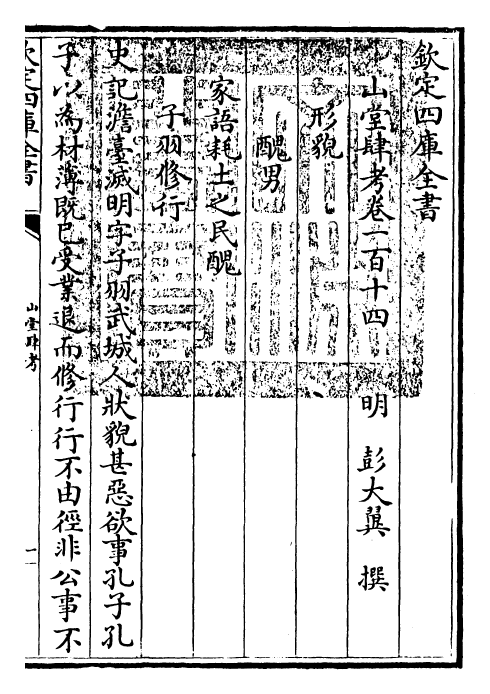 欽定四庫全書
山堂肆考卷一百十四 明 彭大翼 撰
形貌
醜男
家語耗土之民醜
子羽修行
史記澹臺滅明字子羽武城人狀貌甚惡欲事孔子孔
子以為材薄既已受業退而修行行不由徑非公事不
欽定四庫全書
山堂肆考
一